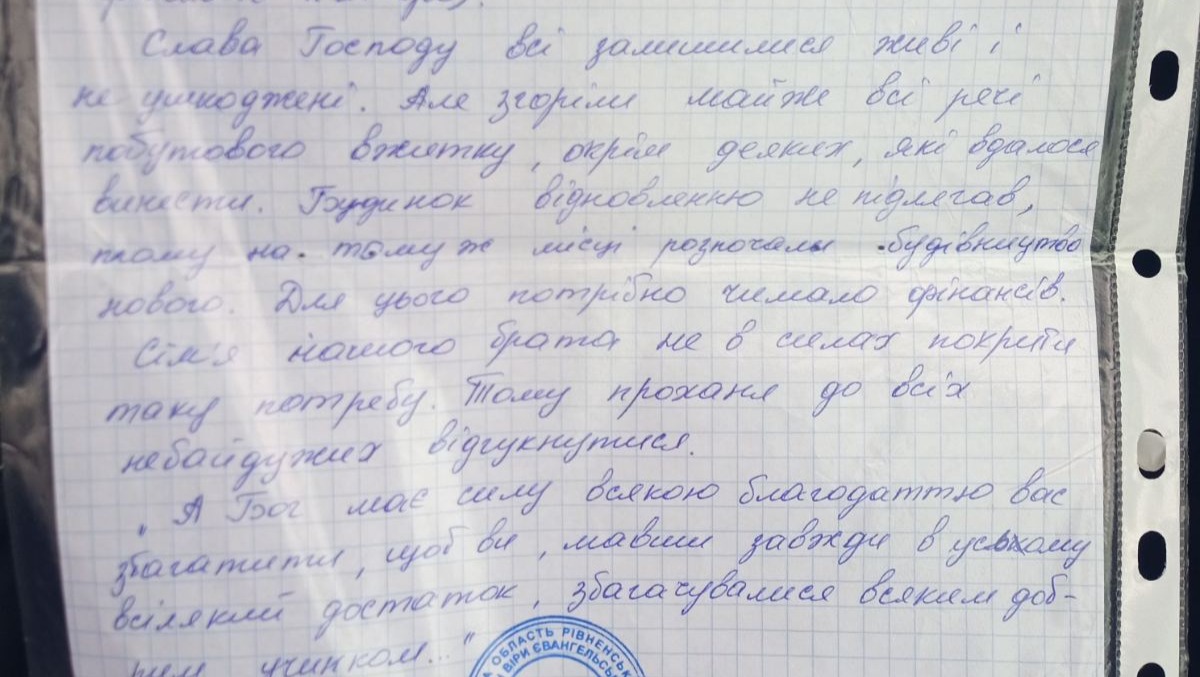 Слава Господу всі залишилися живі і
не ушкоджені. Але згоріли майже всі речі
побутового вжитку, окрім деяких, які вдалося
винести. Будинок відновленню не підлягав,
тому на тому ж місці розпочали будівництво
нового. Для цього потрібно чимало фінансів.
Сім'я нашого брата не в силах покрити
таку потребу. Тому проханя до всіх
небайдужих відгукнутися.
„А Бог має силу всякою благодаттю вас
збагатити, щоб ви, мавши завжди в усьому
всілякий достаток, збагачувалися всяким доб-
рим учинком..."
ОБЛАСТЬ РІВНЕНСЬК
ВІРИ ЄВАНГЕЛЬСЬ